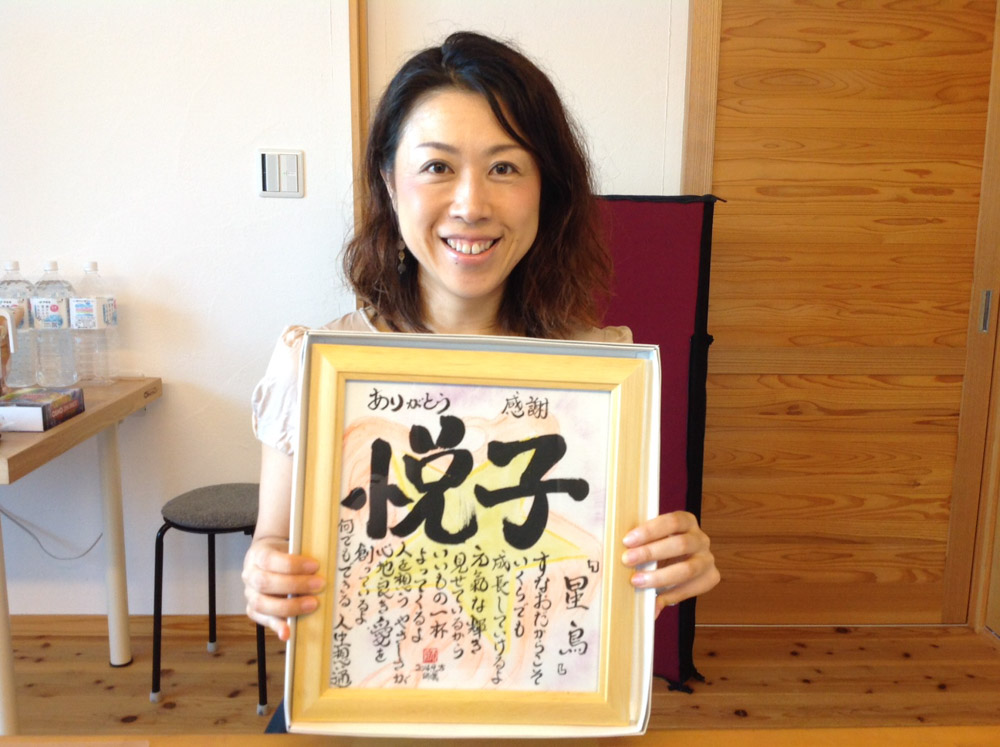 ありがとう 感謝
悦子
『星鳥』
すなおだからこそ
いくらでも
成長していけるよ
元氣な輝き
見せているから
いいもの一杯
よってくるよ
人を想う やさしさが
心地良き愛を
創っているよ
何でもできる